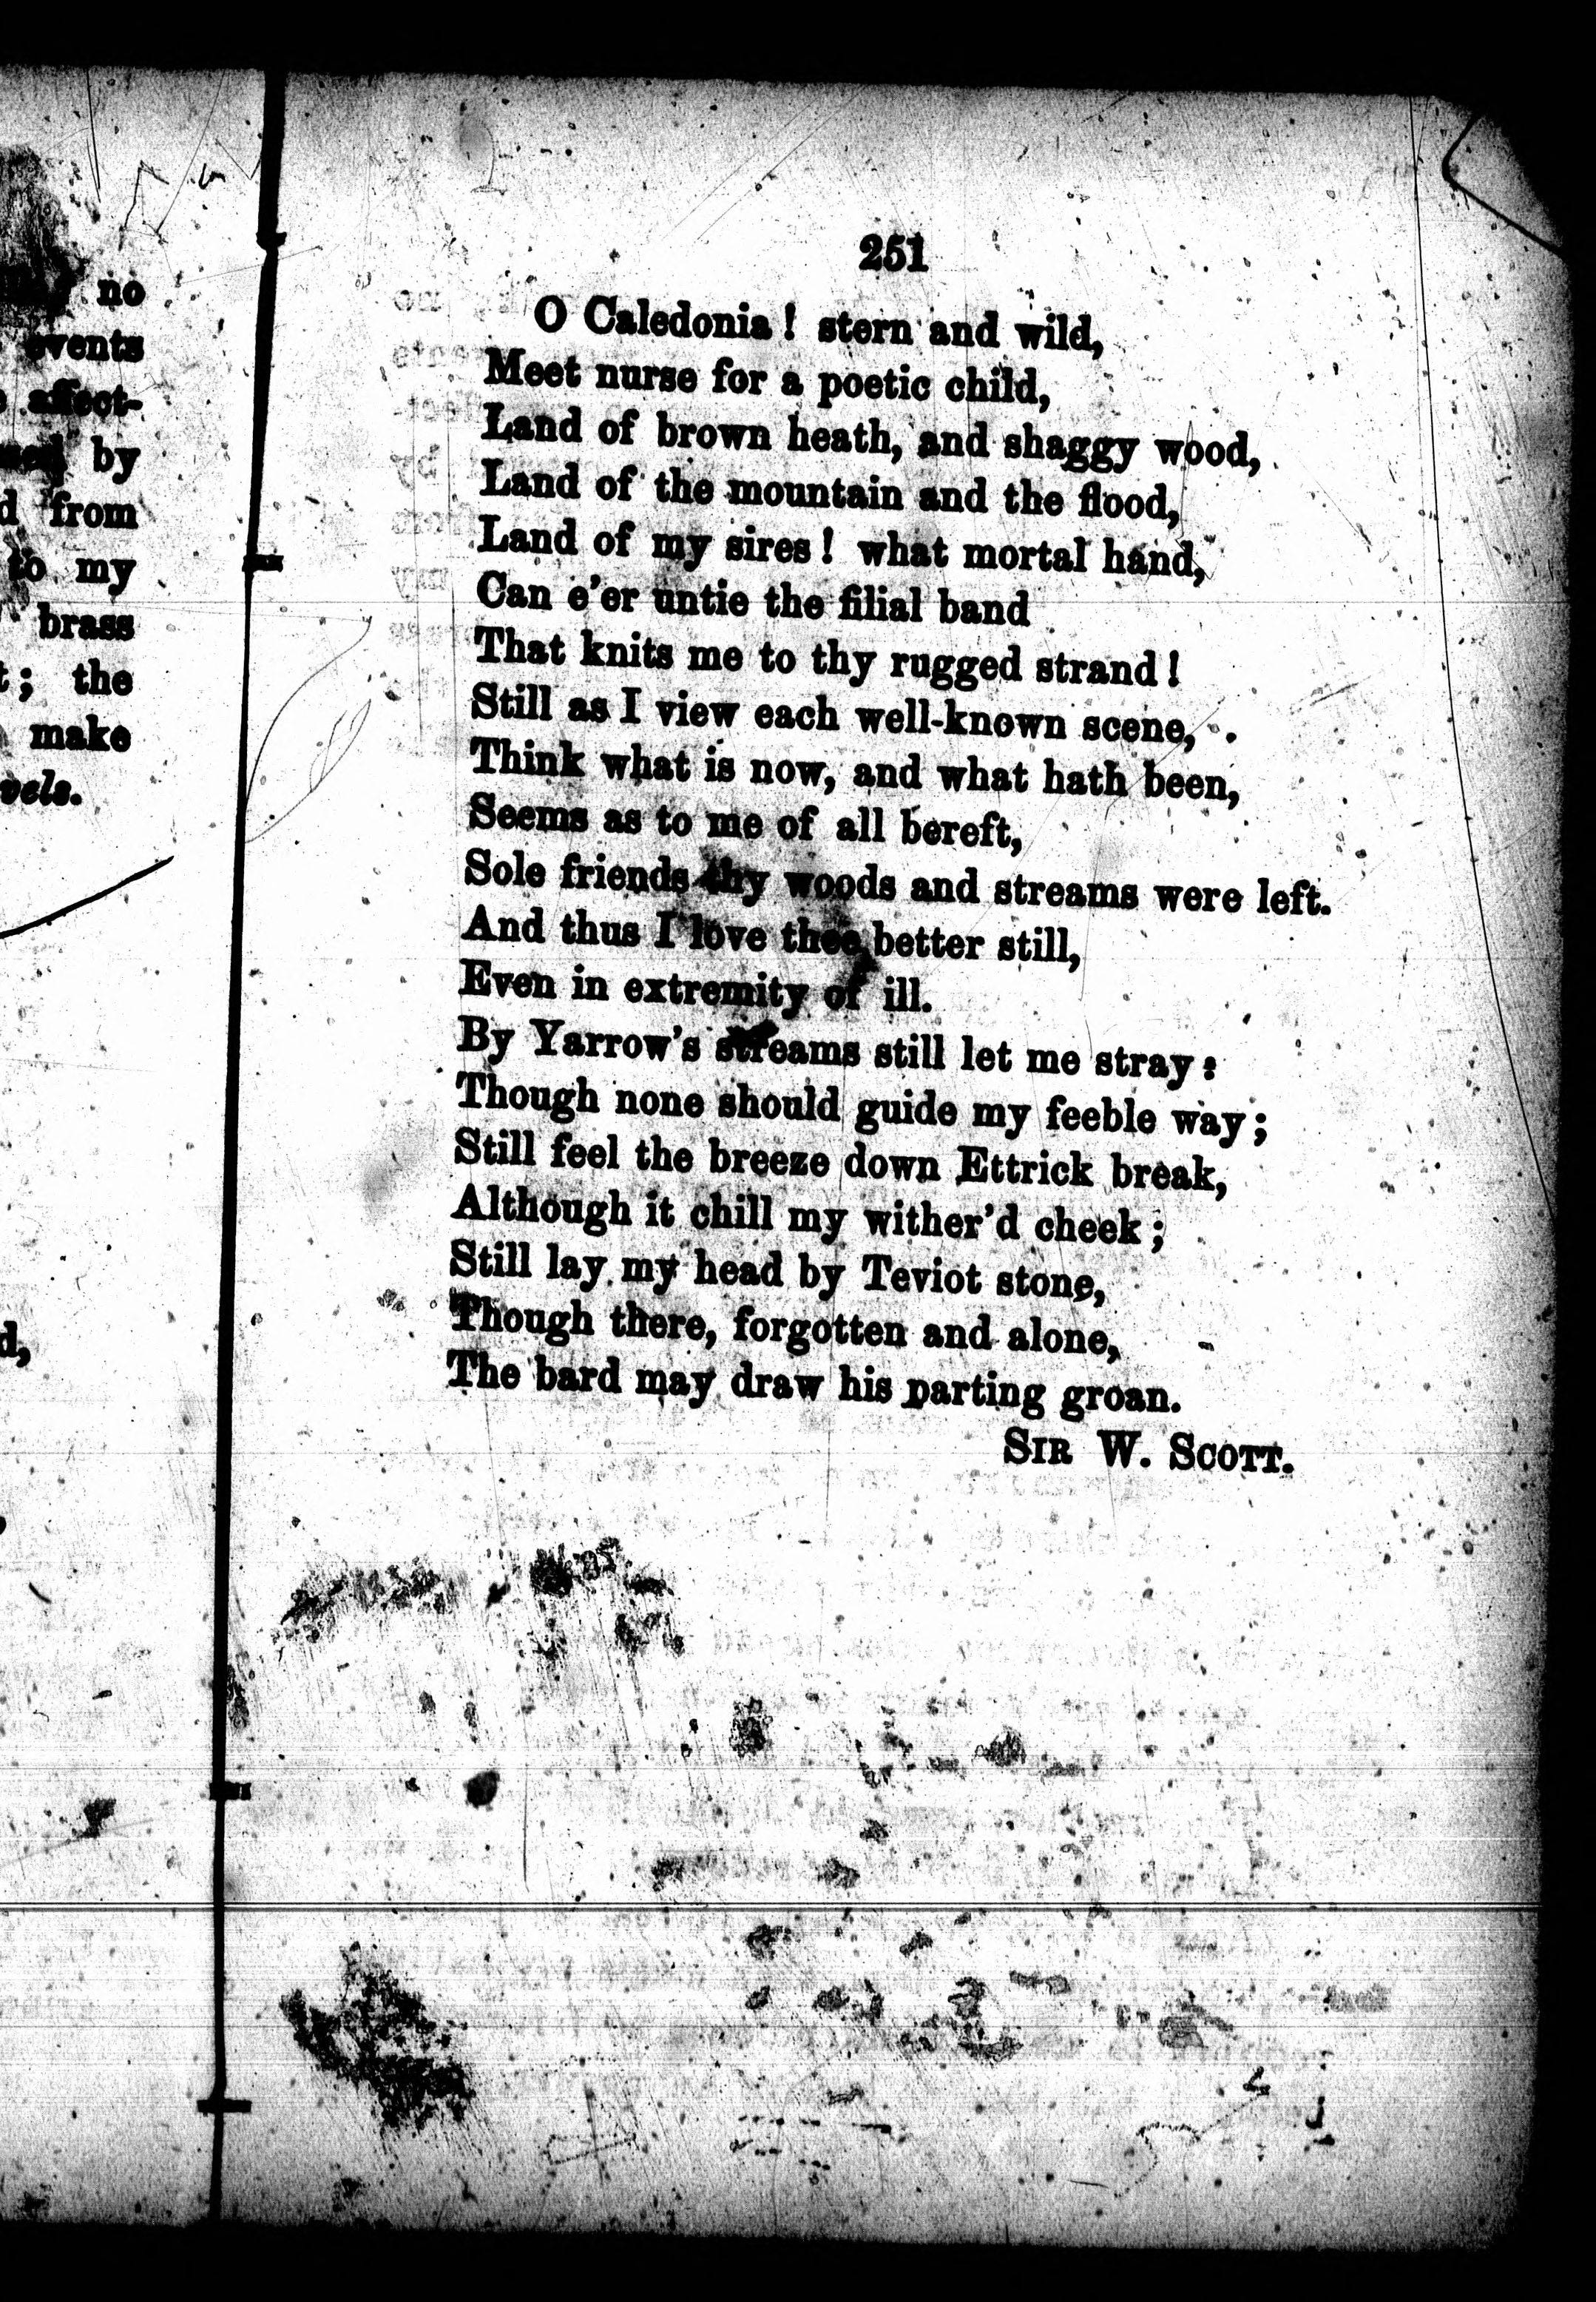 no
events
affect-
by
from
to my
brass
; the
make
d,
251
O Caledonia! stern and wild,
Meet nurse for a poetic child,
Land of brown heath, and shaggy wood,
Land of the mountain and the flood,
Land of my sires! what mortal hand,
Can e'er untie the filial band
That knits me to thy rugged strand!
Still as I view each well-known scene,
Think what is now, and what hath been,
Seems as to me of all bereft,
Sole friends thy woods and streams were left.
And thus I love thee better still,
Even in extremity of ill.
By Yarrow's streams still let me stray:
Though none should guide my feeble way;
Still feel the breeze down Ettrick break,
Although it chill my wither'd cheek;
Still lay my head by Teviot stone,
Though there, forgotten and alone,
The bard may draw his parting groan.
SIR W. SCOTT.